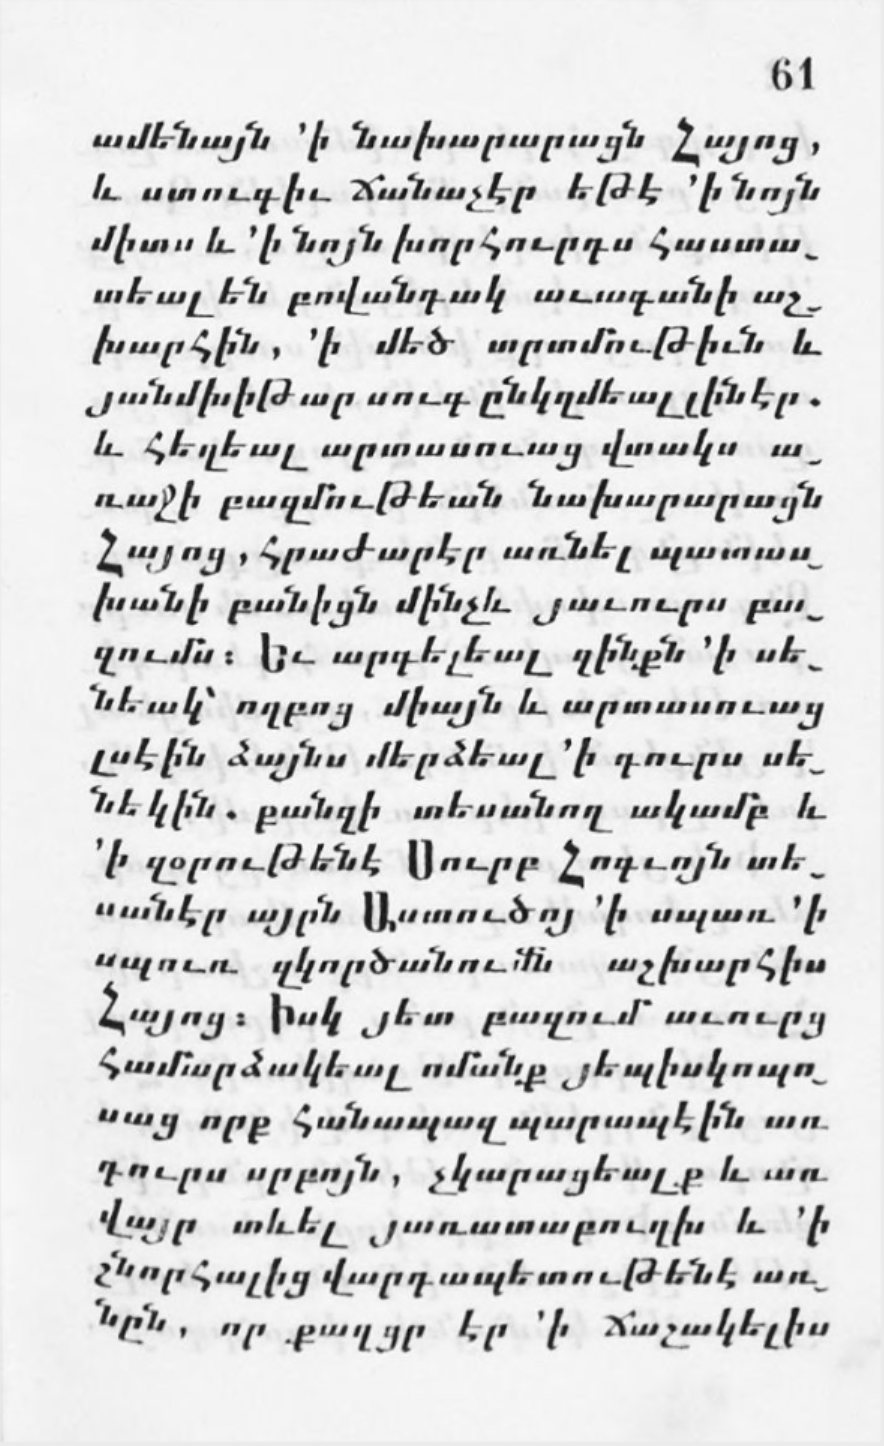 61
ամենայն ՚ի նախարարացն Հայոց,
և ստուգիւ ճանաչէր եթէ ՚ի նոյն
միտս և ՚ի նոյն խորհուրդս հաստա֊
տեալ են բովանդակ աւագանի աշ֊
խարհին, ՚ի մեծ տրտմութիւն և
յանմխիթար սուգ ընկղմեալ լինէր.
և հեղեալ արտասուաց վտակս ա֊
ռաջի բազմութեան նախարարացն
Հայոց, հրաժարէր առնել պատաս֊
խանի բանիցն մինչև յաւուրս բա֊
զումս։ Եւ արգելեալ զինքն ՚ի սե֊
նեակ՝ ողբոց միայն և արտասուաց
լսէին ձայնս մերձեալ ՚ի դուրս սե֊
նեկին. քանզի տեսանող ակամբ և
՚ի զօրութենէ Սուրբ Հոգւոյն տե֊
սանէր այրն Աստուծոյ ՚ի սպառ ՚ի
սպուռ զկործանումն աշխարհիս
Հայոց։ Իսկ յետ բազում աւուրց
համարձակեալ ոմանք յեպիսկոպո֊
սաց որք հանապազ պարապէին առ
դուրս սրբոյն, չկարացեալք և առ
վայր տևել յառատաբուղխ և ՚ի
շնորհալից վարդապետութենէ առ֊
նըն, որ քաղցր էր ՚ի ճաշակելիս